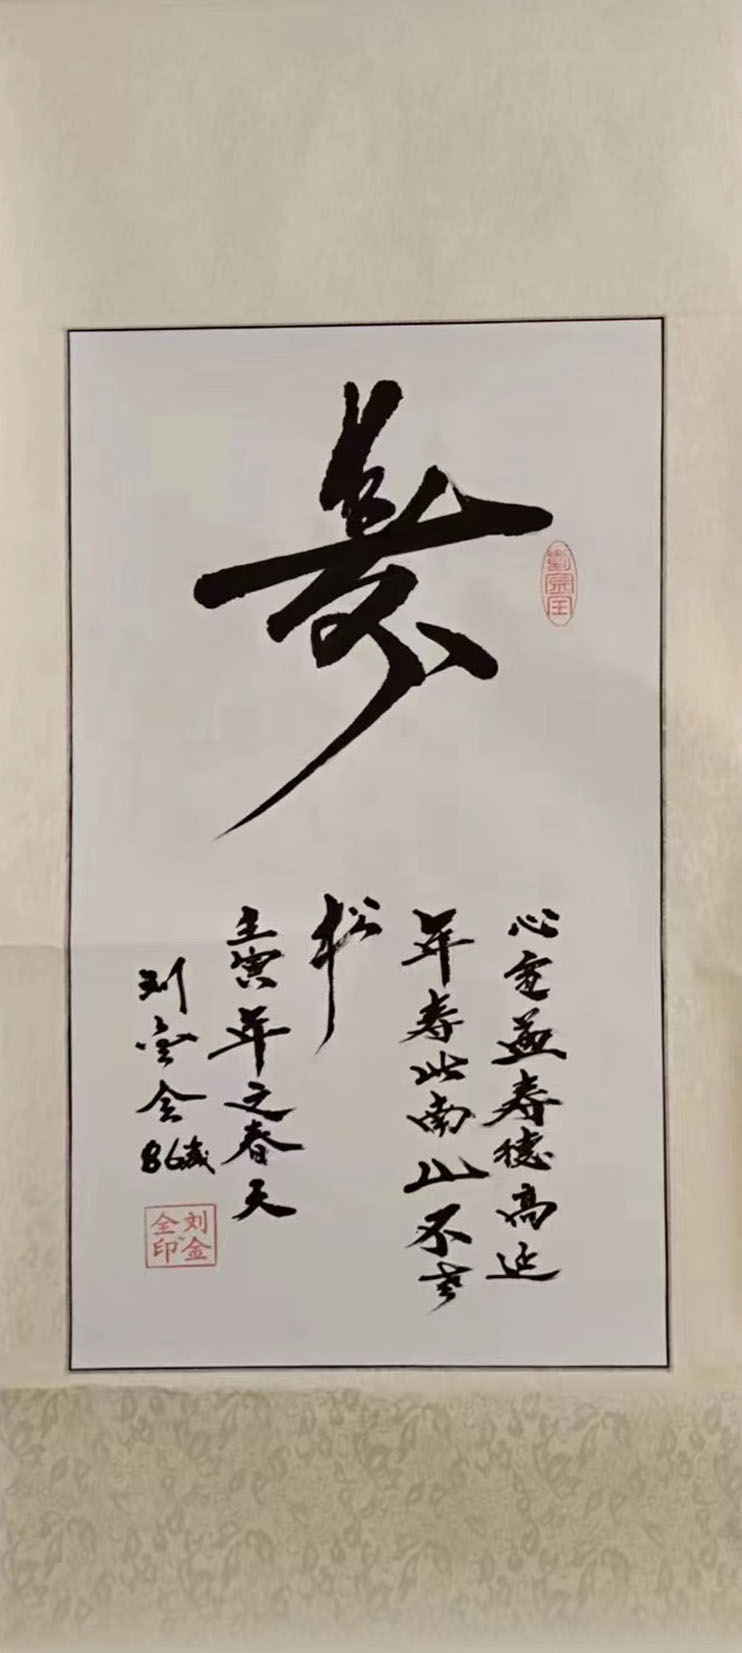 寿
劉金全
心宽益寿德高延
年寿比南山不老
松
壬寅年之春天
刘金全86歲
刘金全印